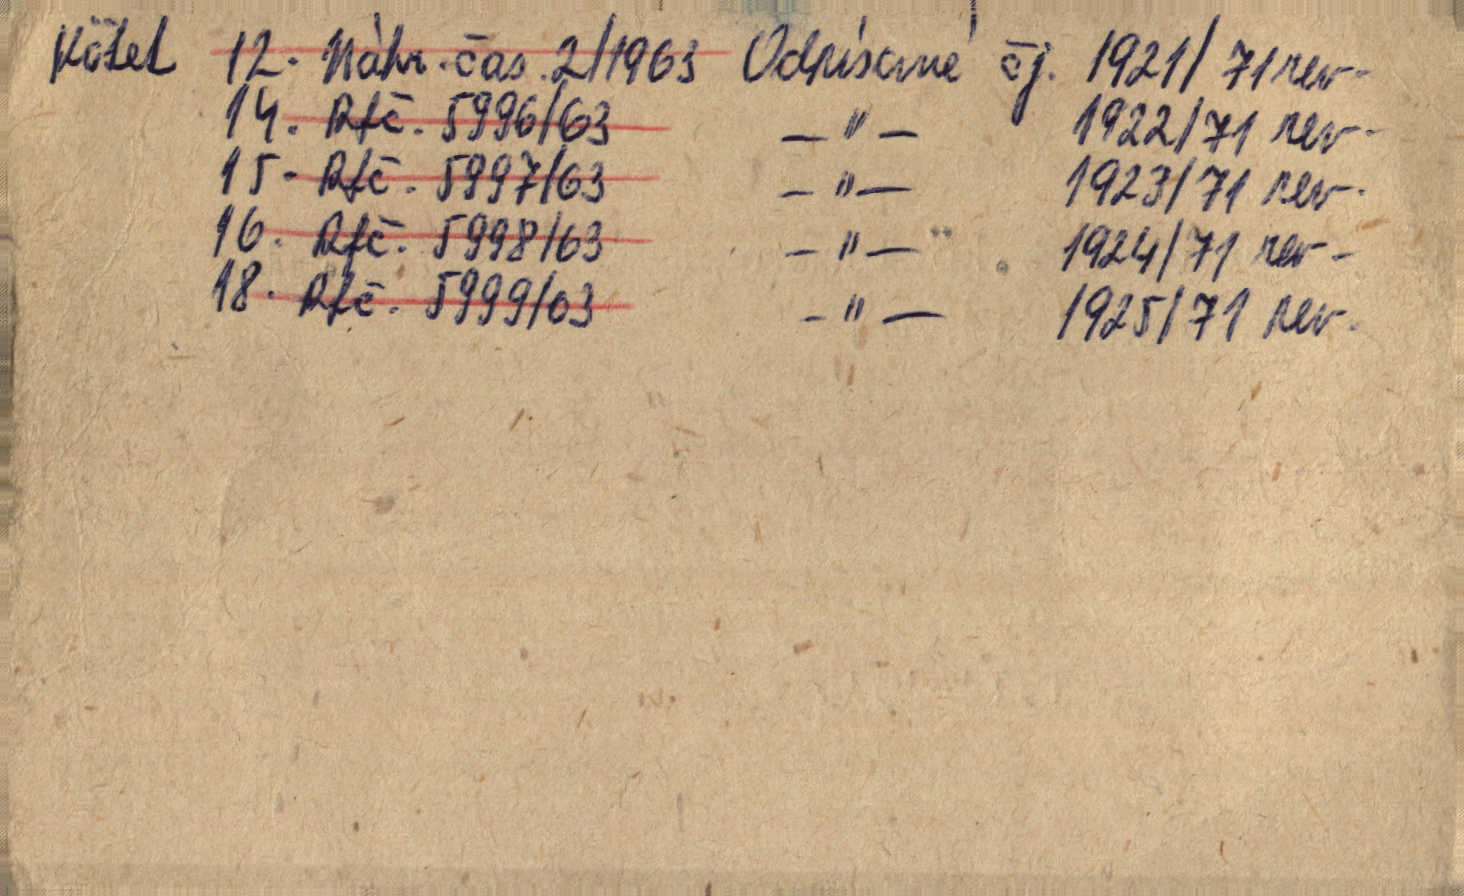 Kôtel 12. Náhr. čas. 2/1963 Odpísané čj. 1921/71 rev.
14. Rfč. 5996/63 — " — 1922/71 rev.
15. Rfč. 5997/63 — " — 1923/71 rev.
16. Rfč. 5998/63 — " — 1924/71 rev.
18. Rfč. 5999/63 — " — 1925/71 rev.